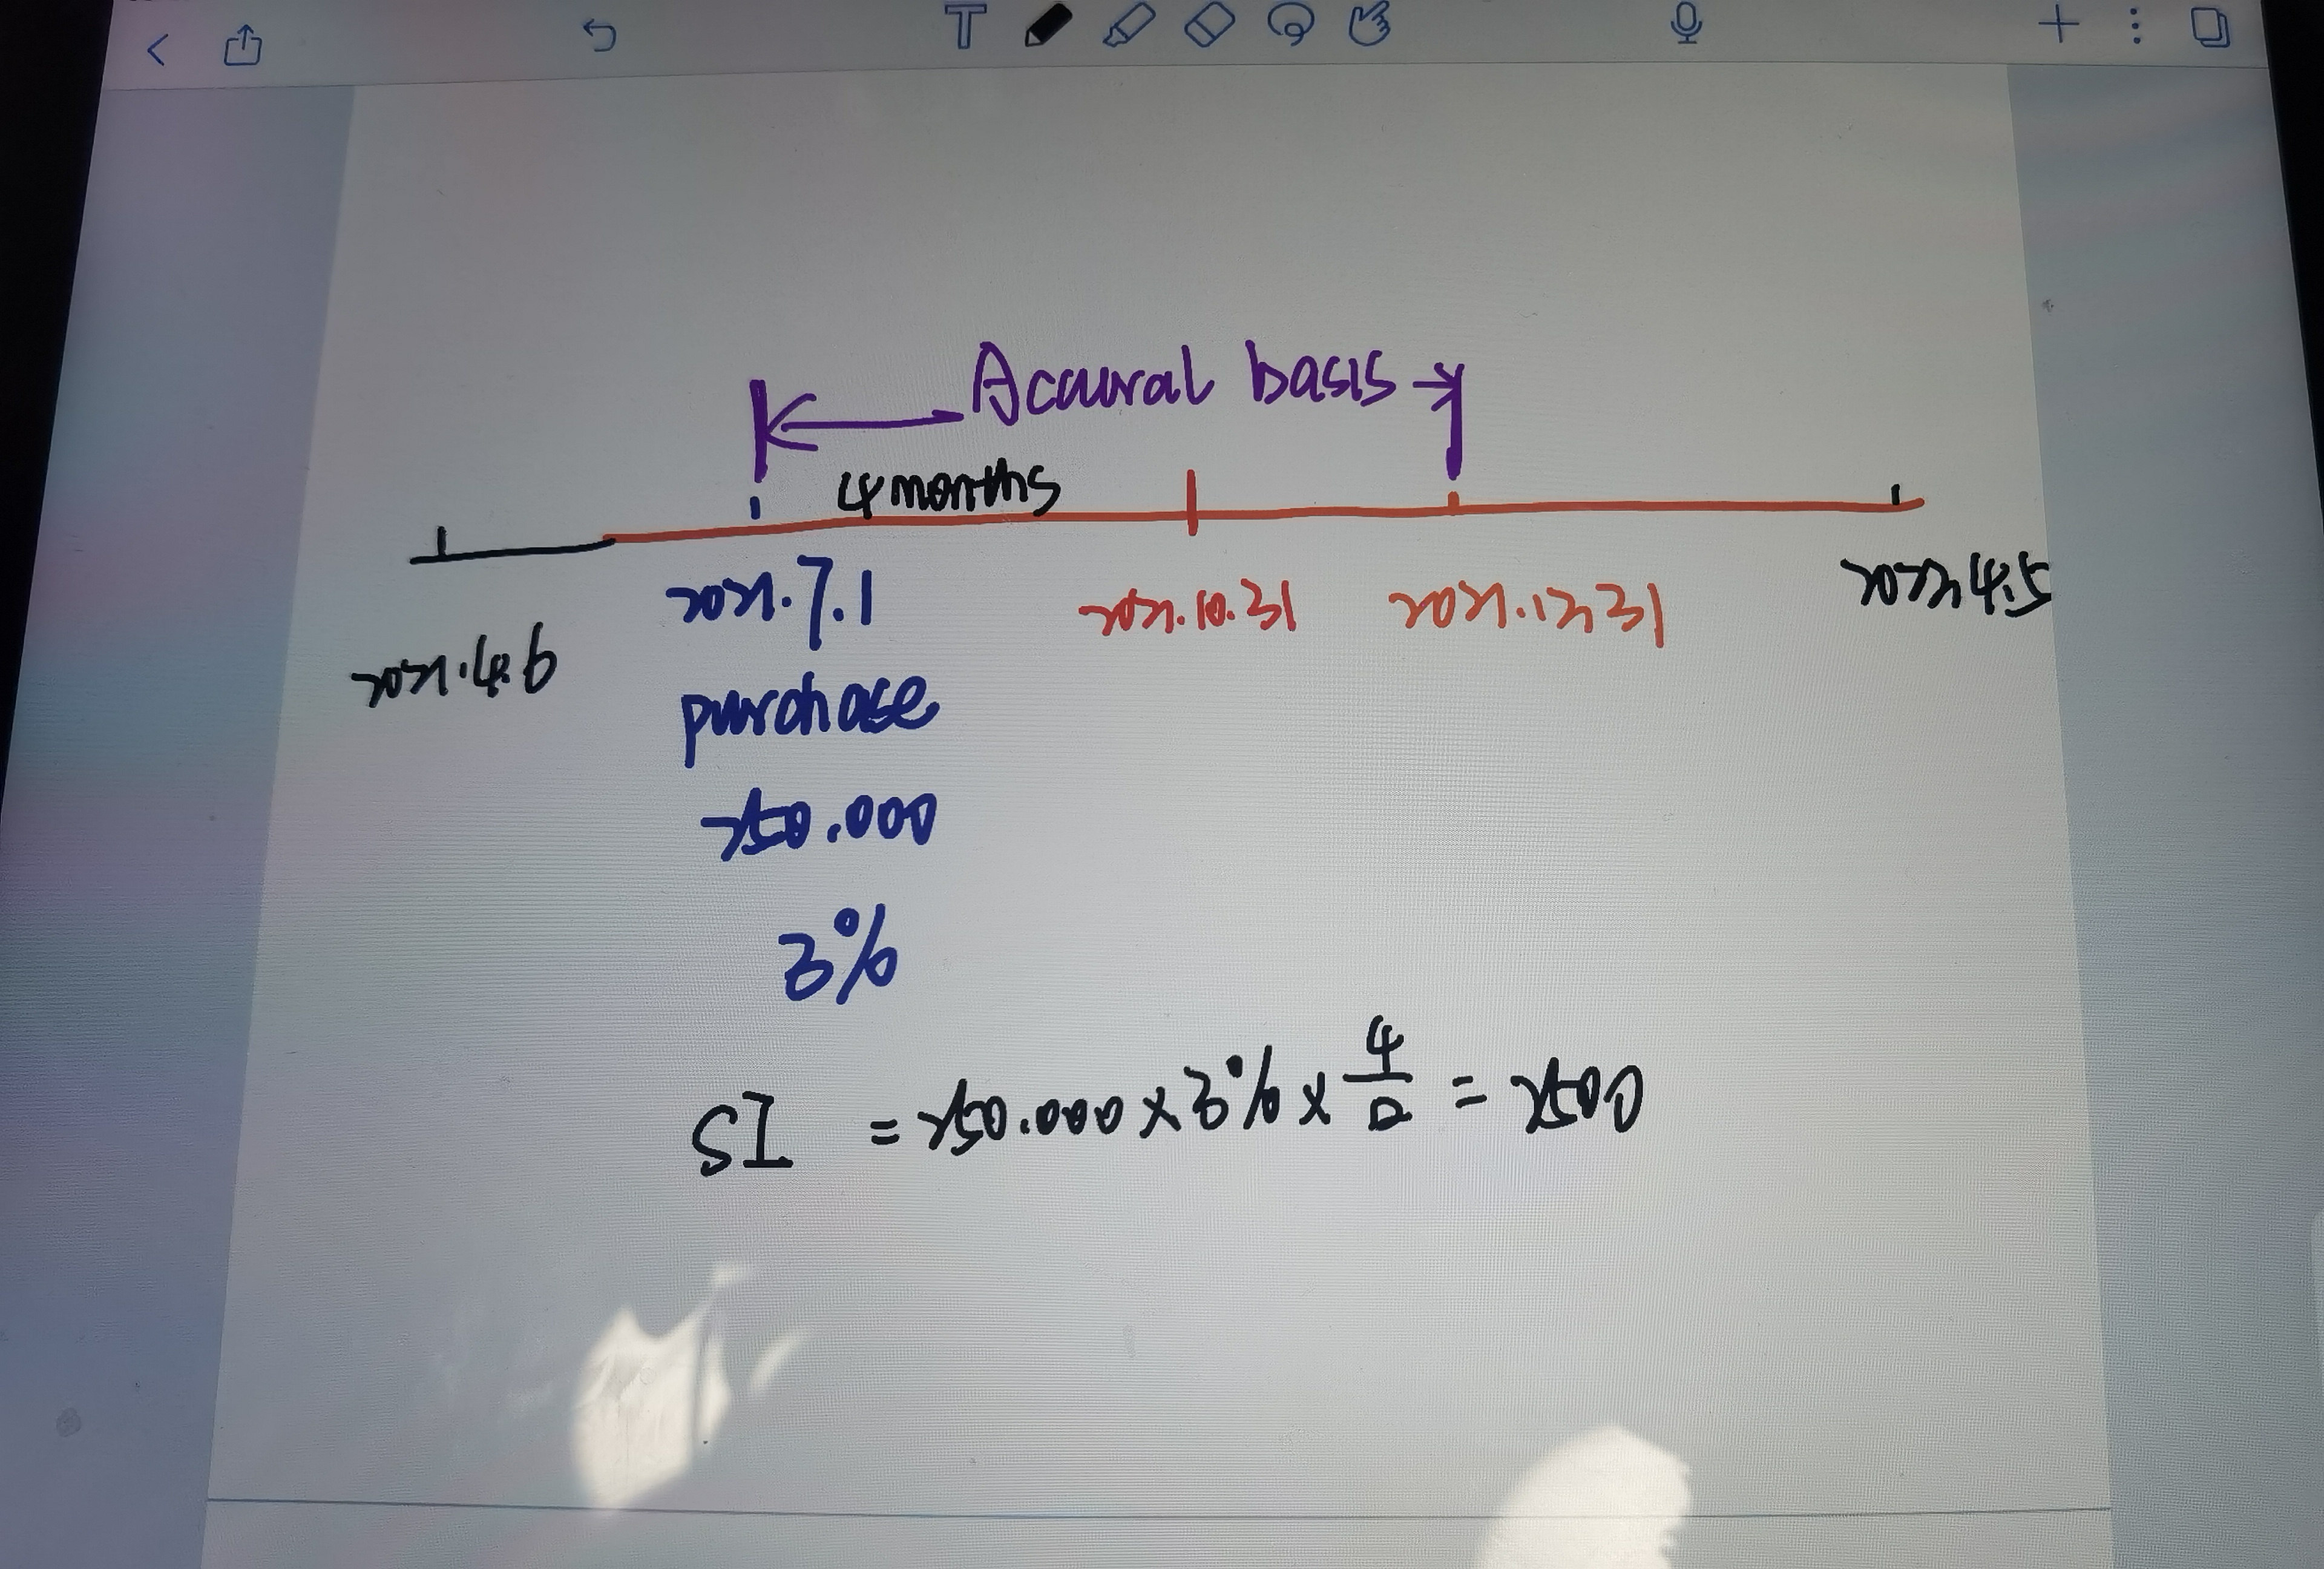 T
Acaural basis
4 months
2021.4.6
2021.7.1
2021.10.31
2021.12.31
2022.4.5
purchase
250.000
3%
SI = 250.000 × 3% × 4/12 = 2500